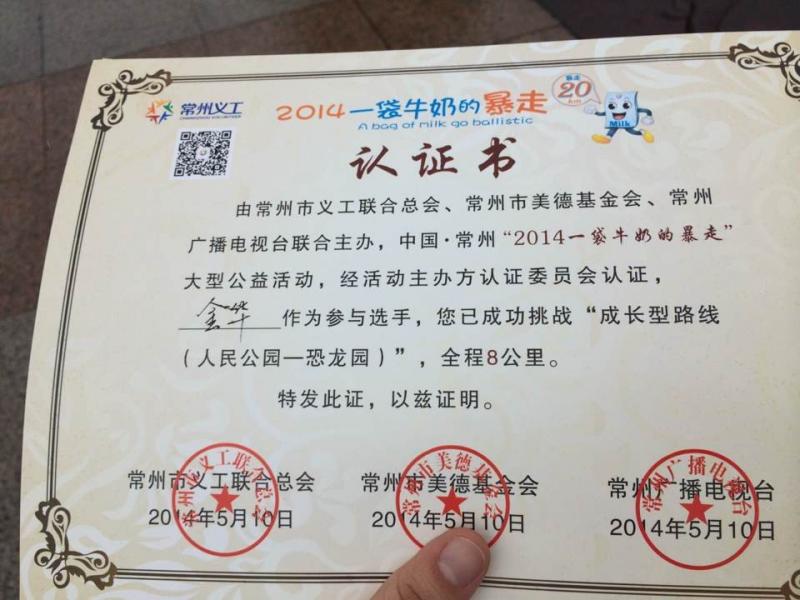 常州义工
CHANGZHOU VOLUNTEER
2014一袋牛奶的暴走
A bag of milk go ballistic
暴走
20
km
Milk
认证书
由常州市义工联合总会、常州市美德基金会、常州
广播电视台联合主办，中国·常州“2014一袋牛奶的暴走”
大型公益活动，经活动主办方认证委员会认证，
金华 作为参与选手，您已成功挑战“成长型路线
（人民公园—恐龙园）”，全程8公里。
特发此证，以兹证明。
常州市义工联合总会 常州市美德基金会 常州广播电视台
2014年5月10日 2014年5月10日 2014年5月10日
常州市义工联合总会
常州市美德基金会
常州广播电视台